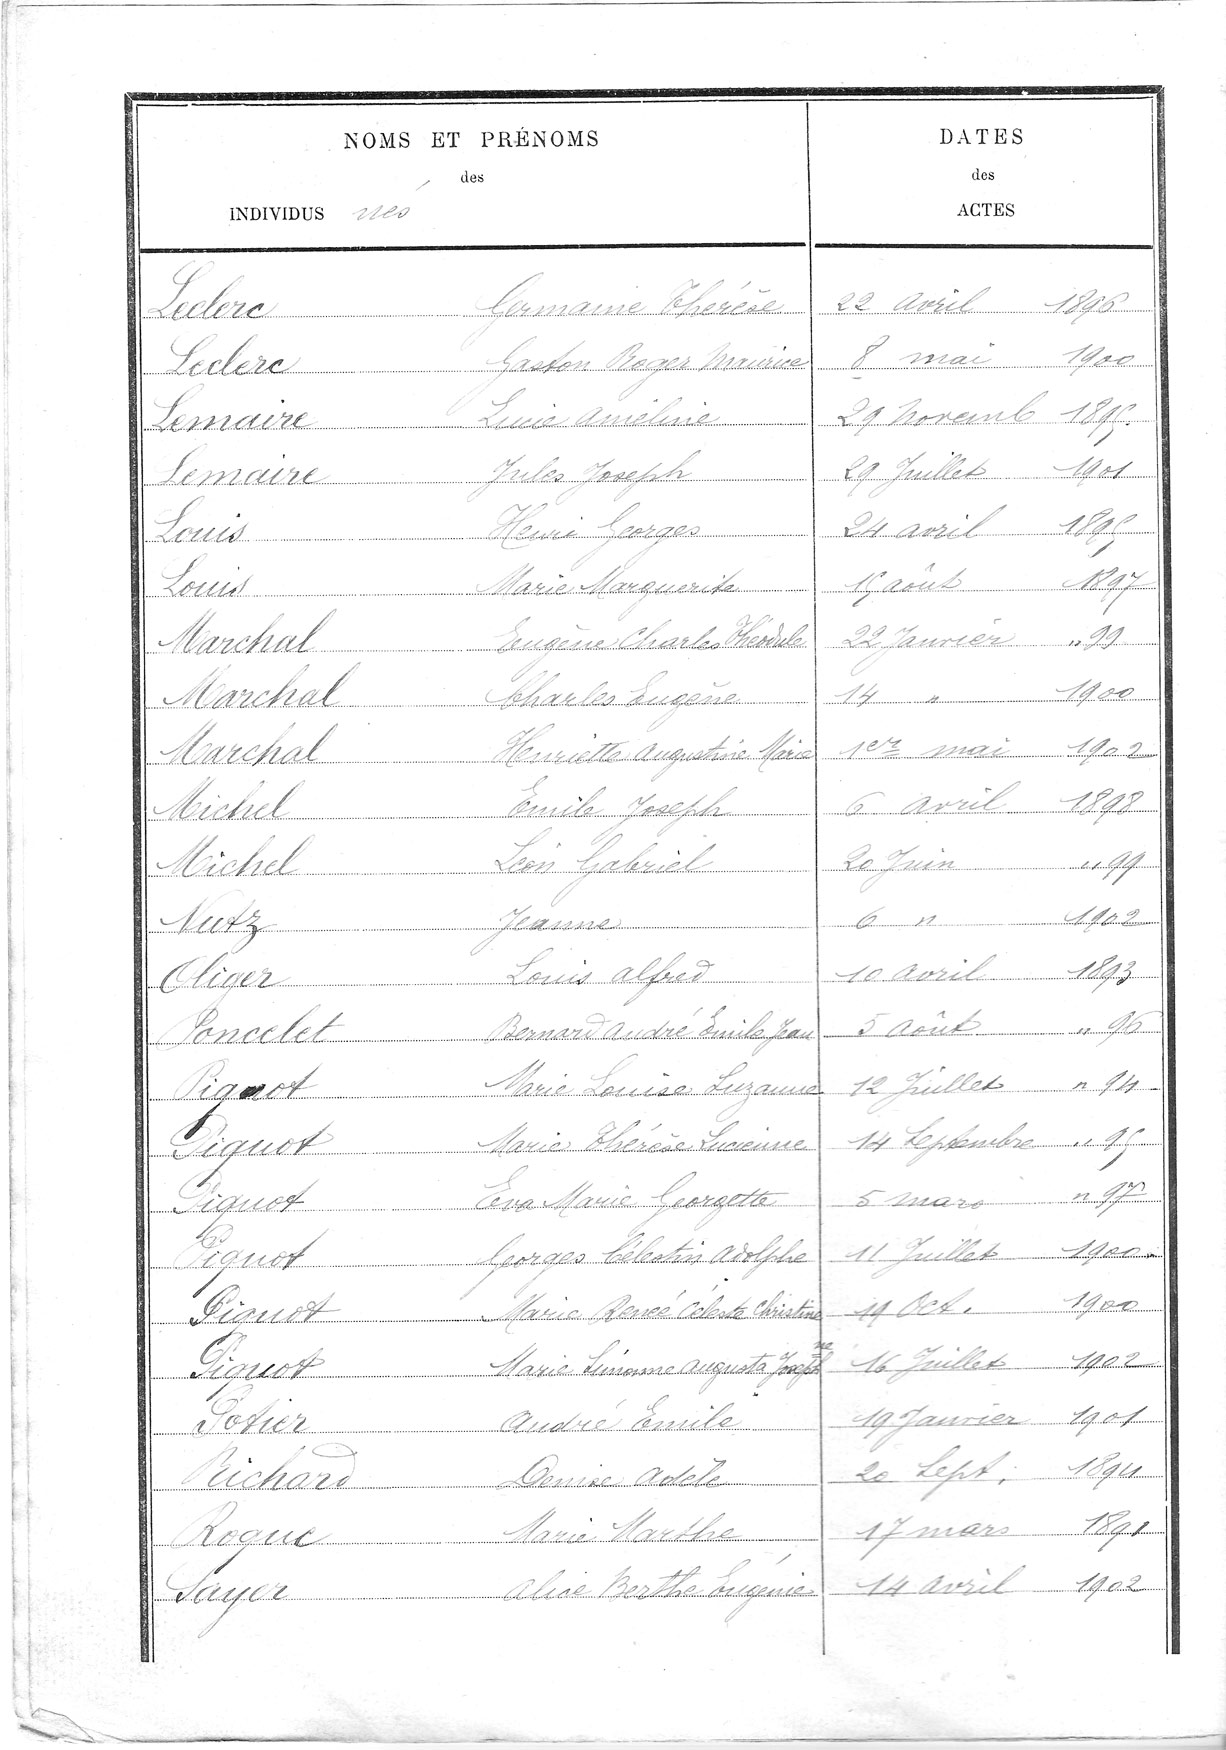 NOMS ET PRÉNOMS
des
INDIVIDUS nés
DATES
des
ACTES
Leclerc Germaine Thérèse 22 avril 1896
Leclerc Gaston Roger Maurice 8 mai 1900
Lemaire Lucie Améline 29 novemb 1895.
Lemaire Jules Joseph 29 Juillet 1901
Louis Henri Georges 24 avril 1895
Louis Marie Marguerite 15 août 1897
Marchal Eugène Charles Théodule 22 Janvier " 99
Marchal Charles Eugène 14 " 1900
Marchal Henriette Augustine Marie 1er mai 1902
Michel Emile Joseph 6 avril 1898
Michel Léon Gabriel 20 Juin " 99
Nutz Jeanne 6 " 1902
Oliger Louis Alfred 10 avril 1893
Poncelet Bernard André Emile Jean 5 août " 96
Piquot Marie Louise Suzanne 12 Juillet " 94
Piquot Marie Thérèse Lucienne 14 Septembre " 95
Piquot Eva Marie Georgette 5 mars " 97
Piquot Georges Célestin Adolphe 11 Juillet 1900
Piquot Marie Renée Céleste Christine 19 Oct. 1900
Piquot Marie Simonne Augusta Josephne 16 Juillet 1902
Potier André Emile 19 Janvier 1901
Richard Denise Adèle 20 Sept. 1894
Roque Marie Marthe 17 mars 1891
Sayer Alice Berthe Eugénie 14 avril 1902